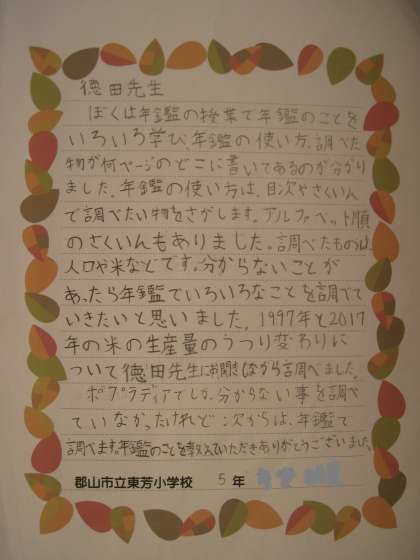 徳田先生
ぼくは年鑑の授業で年鑑のことを
いろいろ学び、年鑑の使い方、調べた
物が何ページのどこに書いてあるのが分かり
ました。年鑑の使い方は、目次やさくいん
で調べたい物をさがします。アルファベット順
のさくいんもありました。調べたものは、
人口や米などです。分からないことが
あったら年鑑でいろいろなことを調べて
いきたいと思いました。1997年と2017
年の米の生産量のうつり変わりに
ついて徳田先生にお聞きしながら調べました。
ポプラディアでしか、分からない事を調べ
ていなかったけれど、次からは、年鑑で
調べます。年鑑のことを教えていただきありがとうございました。
郡山市立東芳小学校 5年